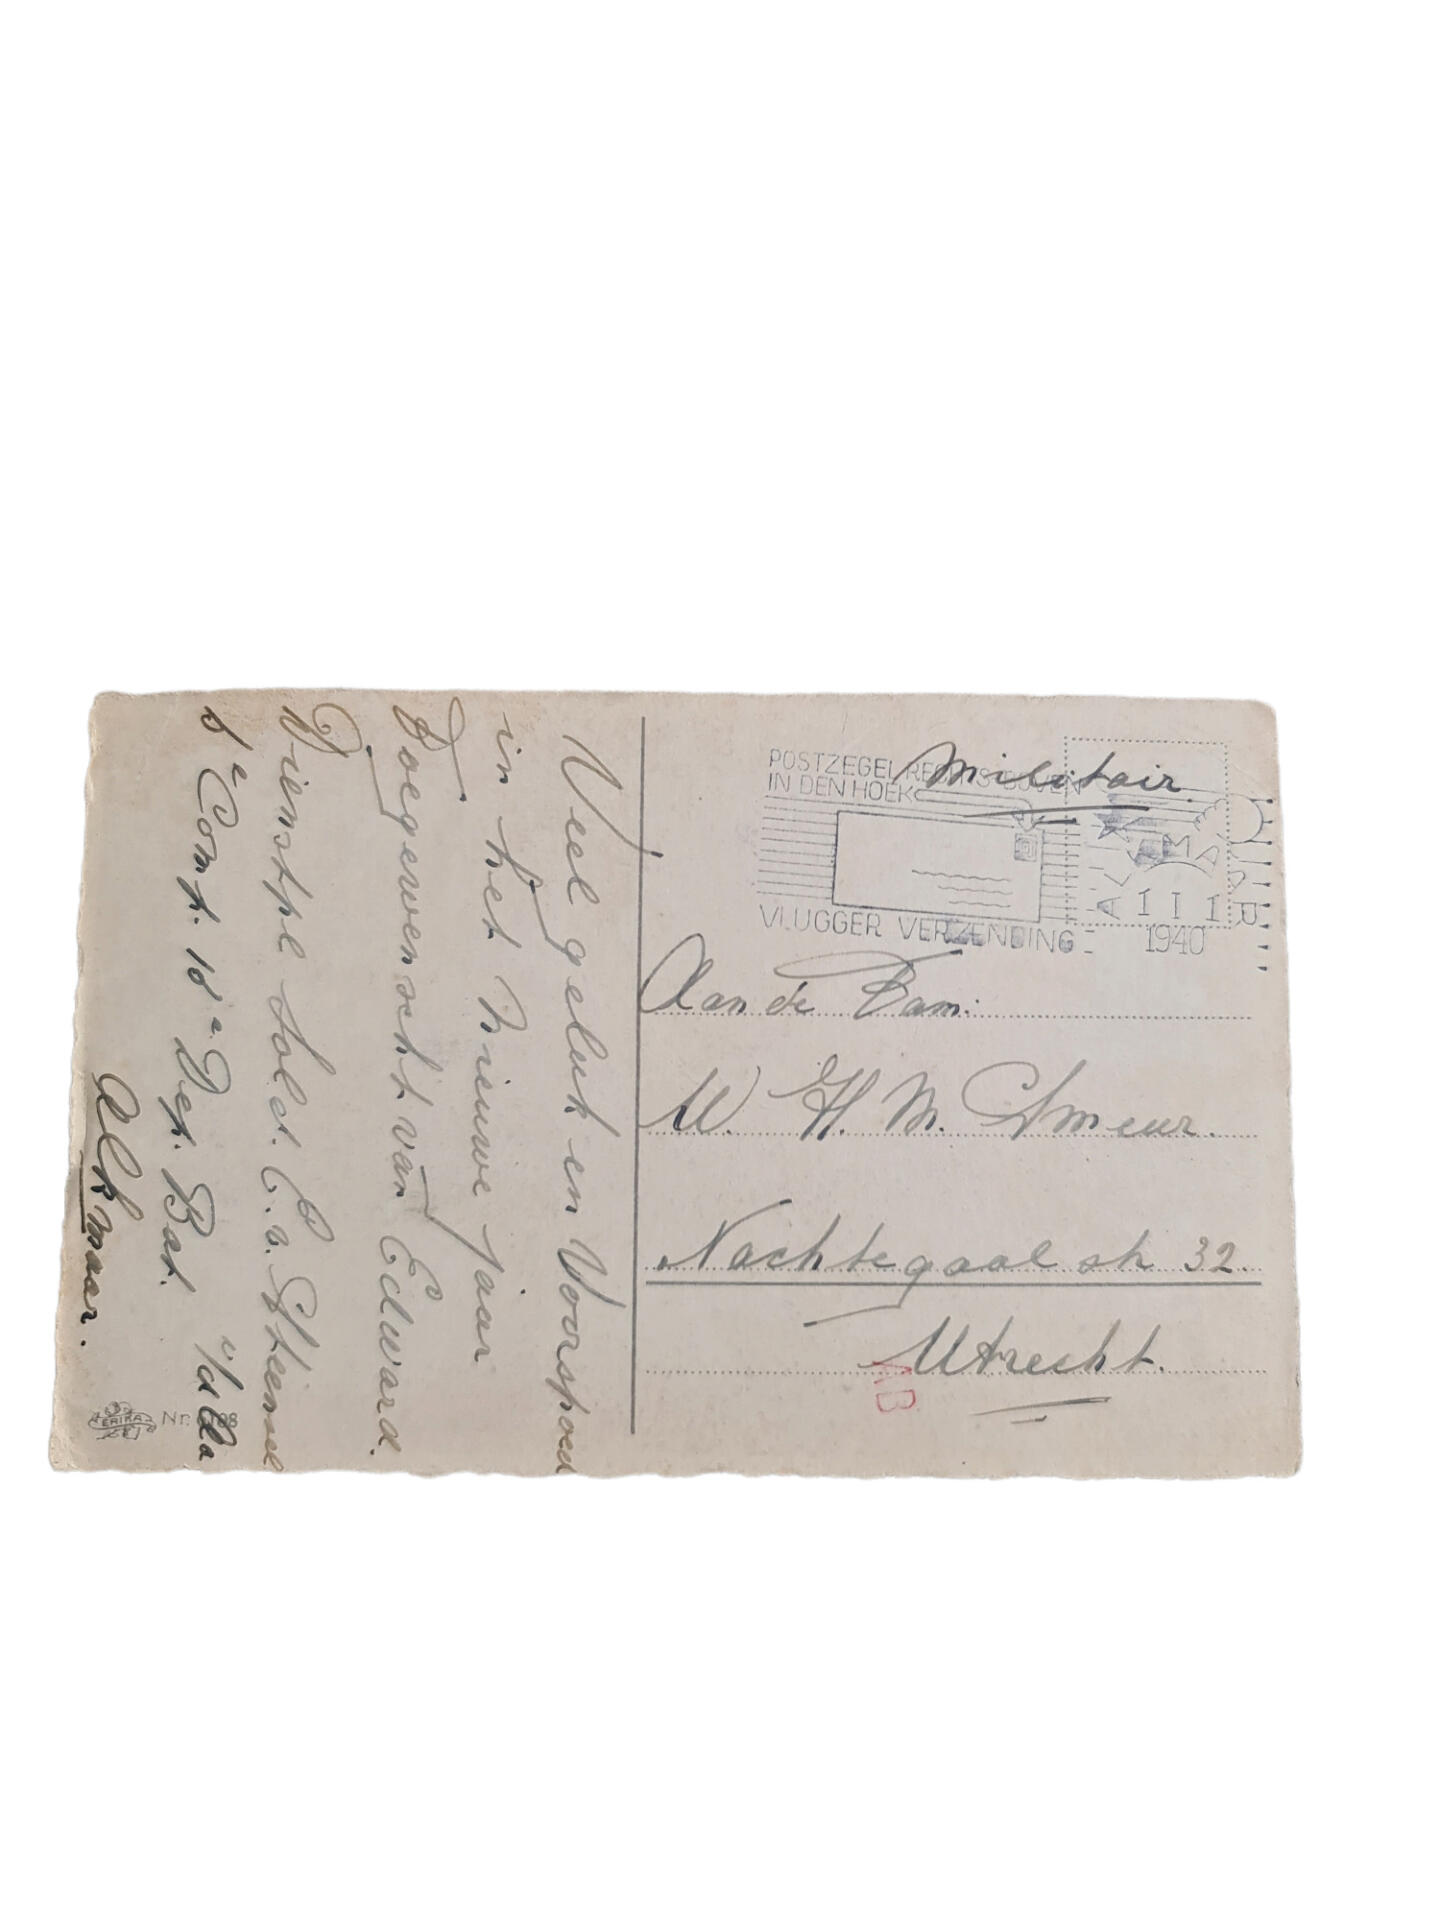 Veel geluk en Voorspoed
in het nieuwe jaar
Toegewenscht van Edward.
Dienstpl. Sold. E. v.
Comp. 10e Dep. Bat.
Alkmaar.
ERIKA Nr.
Militair.
POSTZEGEL RECHTS BOVEN
IN DEN HOEK
VLUGGER VERZENDING
ALKMAAR
1 I 1
1940
Aan de Fam:
W. H. M. Smeur.
Nachtegaal str 32.
Utrecht.
AB